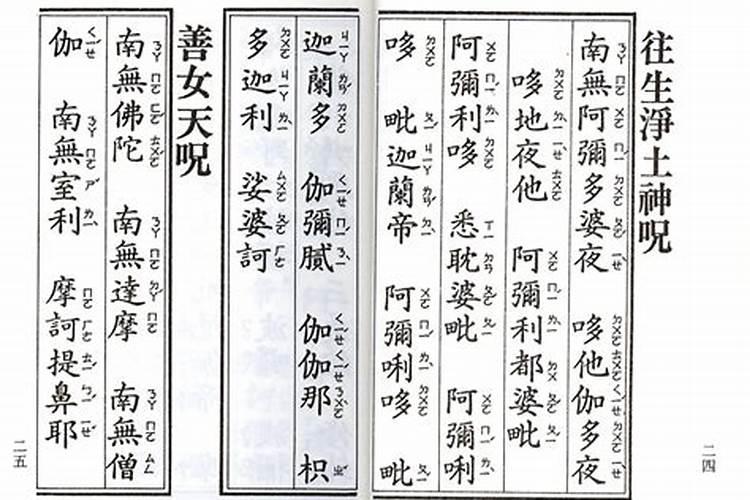 往生淨土神呪
南無阿彌多婆夜　哆他伽多夜
哆地夜他　阿彌利都婆毗
阿彌利哆　悉耽婆毗　阿彌唎
哆　毗迦蘭帝　阿彌唎哆　毗
二四
迦蘭多　伽彌膩　伽伽那　枳
多迦利　娑婆訶
善女天呪
南無佛陀　南無達摩　南無僧
伽　南無室利　摩訶提鼻耶
二五